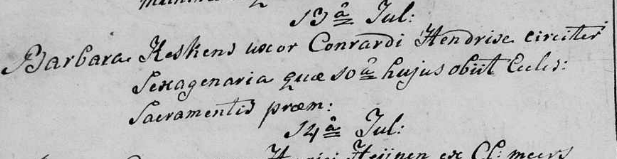 13ª Jul:
Barbara Heskens uxor Conrardi Hendrix circiter
Sexagenaria quæ 10ª hujus obiit Eccles:
Sacramentis præm:
14ª Jul:
Heijnen ex Cl: meers